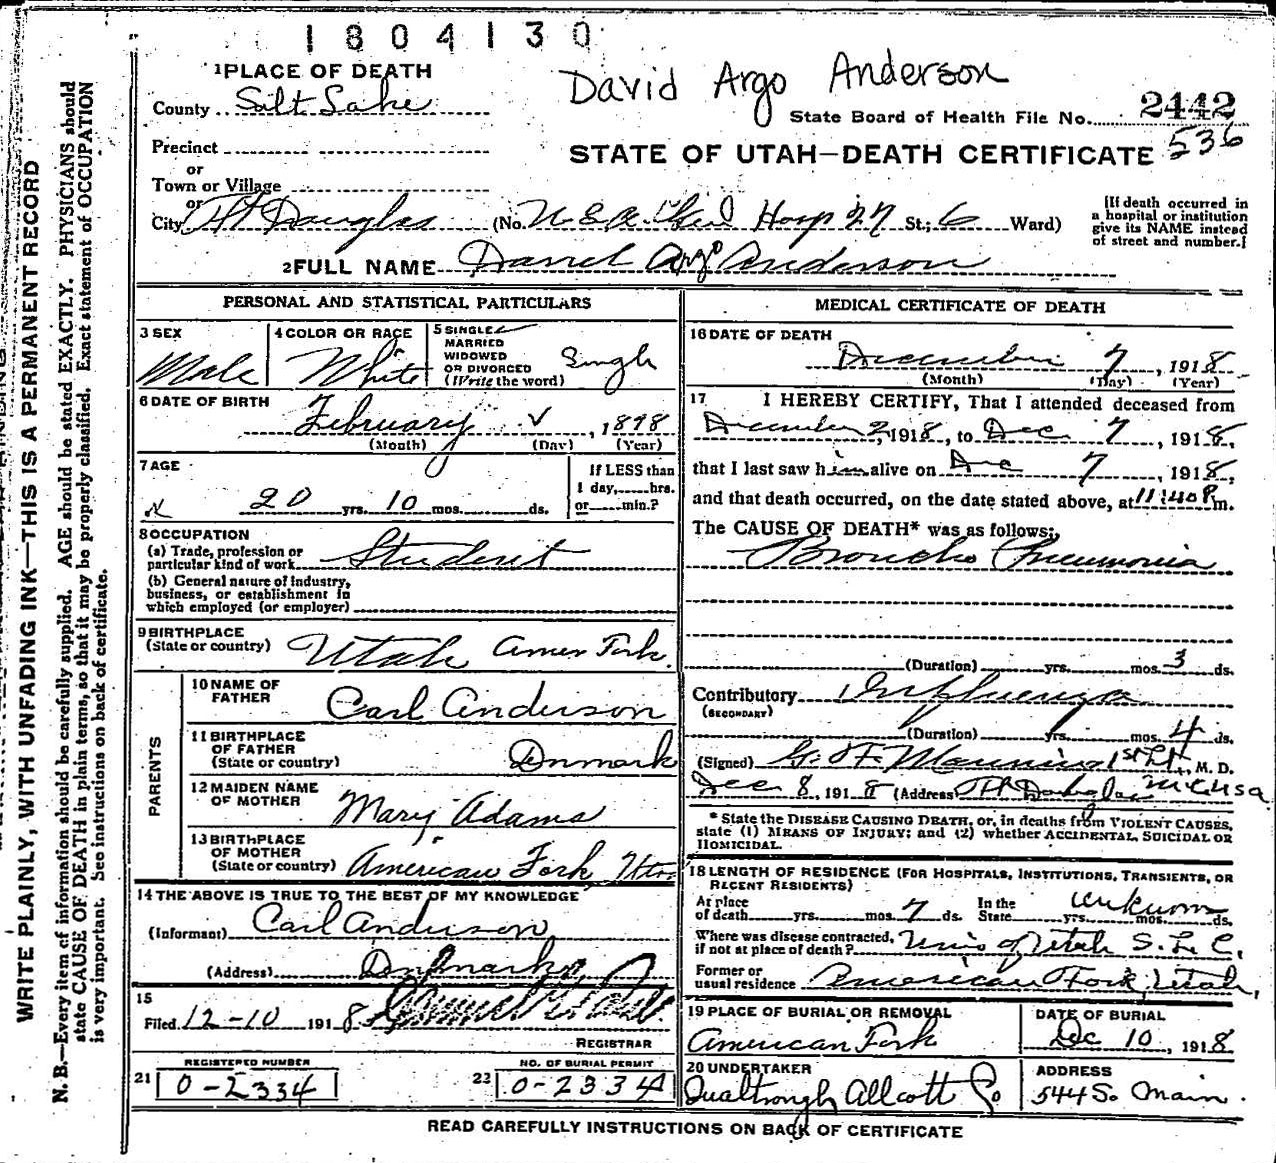 1804130
David Argo Anderson
1 PLACE OF DEATH
County Salt Lake
State Board of Health File No. 2442
536
Precinct
or
STATE OF UTAH—DEATH CERTIFICATE
Town or Village
or
City Ft Douglas (No. Hosp 27 St.; 6 Ward)
[If death occurred in
a hospital or institution
give its NAME instead
of street and number.]
2 FULL NAME Argo Anderson
PERSONAL AND STATISTICAL PARTICULARS
3 SEX
Male
4 COLOR OR RACE
White
5 SINGLE
MARRIED
WIDOWED
OR DIVORCED
(Write the word)
Single
6 DATE OF BIRTH
February 1898
(Month) (Day) (Year)
7 AGE
20 yrs. 10 mos. ds.
If LESS than
1 day, hrs.
or min.?
8 OCCUPATION
(a) Trade, profession or
particular kind of work Student
(b) General nature of industry,
business, or establishment in
which employed (or employer)
9 BIRTHPLACE
(State or country) Utah Amer Fork
PARENTS
10 NAME OF
FATHER Carl Anderson
11 BIRTHPLACE
OF FATHER
(State or country) Denmark
12 MAIDEN NAME
OF MOTHER Mary Adams
13 BIRTHPLACE
OF MOTHER
(State or country) American Fork Utah
14 THE ABOVE IS TRUE TO THE BEST OF MY KNOWLEDGE
(Informant) Carl Anderson
(Address) Denmark
15
Filed 12-10 1918
REGISTRAR
REGISTERED NUMBER
21 0-2334
NO. OF BURIAL PERMIT
22 0-2334
MEDICAL CERTIFICATE OF DEATH
16 DATE OF DEATH
December 7, 1918
(Month) (Day) (Year)
17 I HEREBY CERTIFY, That I attended deceased from
December 2, 1918, to Dec 7, 1918,
that I last saw him alive on Dec 7, 1918,
and that death occurred, on the date stated above, at 11:40 P m.
The CAUSE OF DEATH* was as follows:
Broncho Pneumonia
(Duration) yrs. mos. 3 ds.
Contributory Influenza
(SECONDARY)
(Duration) yrs. mos. 4 ds.
(Signed) G. H. Manning 1st Lt., M. D.
Dec 8, 1918 (Address) Ft Douglas MCUSA
* State the DISEASE CAUSING DEATH, or, in deaths from VIOLENT CAUSES,
state (1) MEANS OF INJURY; and (2) whether ACCIDENTAL, SUICIDAL OR
HOMICIDAL.
18 LENGTH OF RESIDENCE (FOR HOSPITALS, INSTITUTIONS, TRANSIENTS, OR
RECENT RESIDENTS)
At place
of death yrs. mos. 7 ds.
In the
State unknown yrs. mos. ds.
Where was disease contracted,
if not at place of death? Univ of Utah S. L. C.
Former or
usual residence American Fork, Utah,
19 PLACE OF BURIAL OR REMOVAL
American Fork
DATE OF BURIAL
Dec 10, 1918
20 UNDERTAKER
Qualtrough Allcott Co
ADDRESS
544 So Main.
READ CAREFULLY INSTRUCTIONS ON BACK OF CERTIFICATE
WRITE PLAINLY, WITH UNFADING INK—THIS IS A PERMANENT RECORD
N. B.—Every item of information should be carefully supplied. AGE should be stated EXACTLY. PHYSICIANS should
state CAUSE OF DEATH in plain terms, so that it may be properly classified. Exact statement of OCCUPATION
is very important. See instructions on back of certificate.